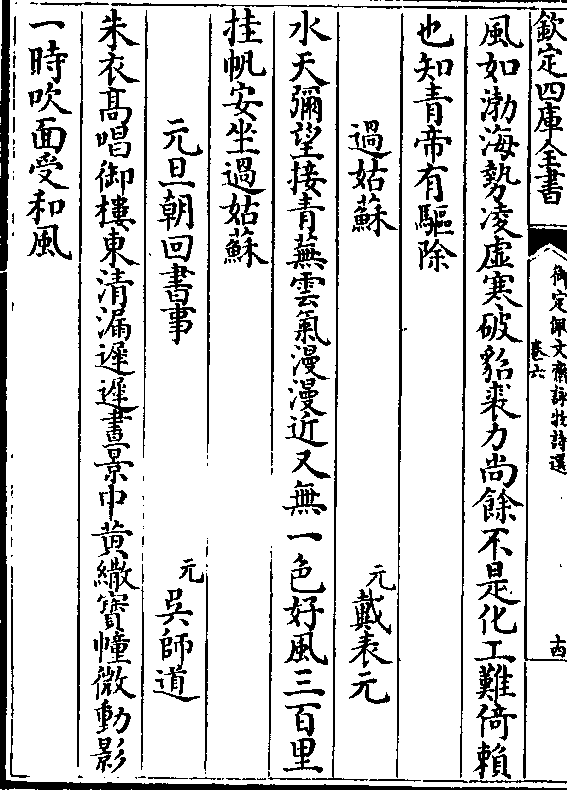 欽定四庫全書
御定佩文齋詠物詩選
卷六
十四
風如渤海勢凌虛寒破貂裘力尚餘不是化工難倚賴
也知青帝有驅除
過姑蘇
元
戴表元
水天彌望接青蕪雲氣漫漫近又無一色好風三百里
挂帆安坐過姑蘇
元旦朝回書事
元
吳師道
朱衣高唱御樓東清漏遲遲晝景中黃繖寶幢微動影
一時吹面受和風